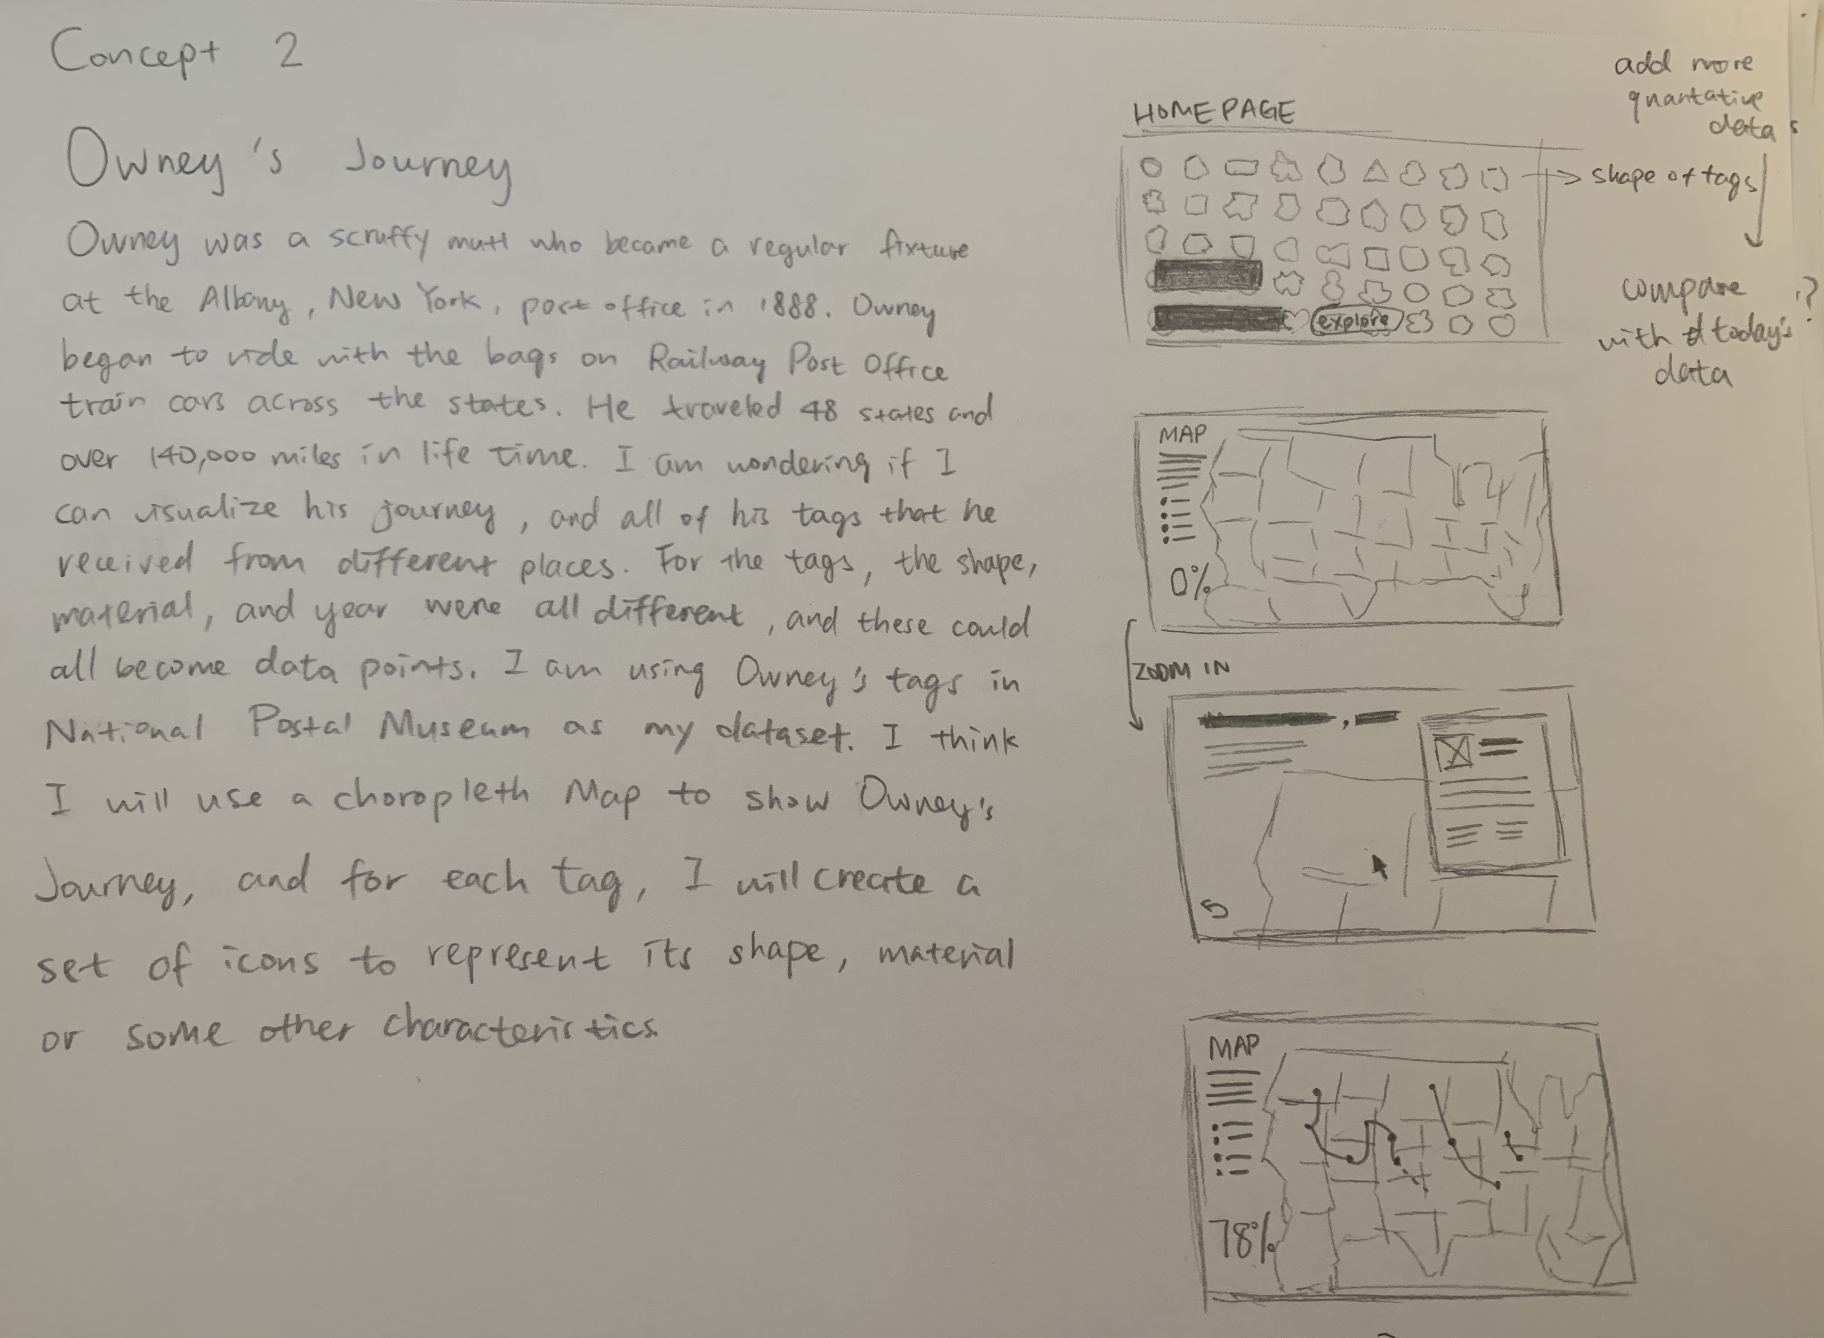 Concept 2
Owney's Journey
Owney was a scruffy mutt who became a regular fixture
at the Albany, New York, post office in 1888. Owney
began to ride with the bags on Railway Post Office
train cars across the states. He traveled 48 states and
over 140,000 miles in life time. I am wondering if I
can visualize his journey, and all of his tags that he
received from different places. For the tags, the shape,
material, and year were all different, and these could
all become data points. I am using Owney's tags in
National Postal Museum as my dataset. I think
I will use a choropleth Map to show Owney's
Journey, and for each tag, I will create a
set of icons to represent its shape, material
or some other characteristics
HOMEPAGE
explore
add more
quantative
datas
shape of tags
compare
with today's
data
?
MAP
0%
ZOOM IN
MAP
78%